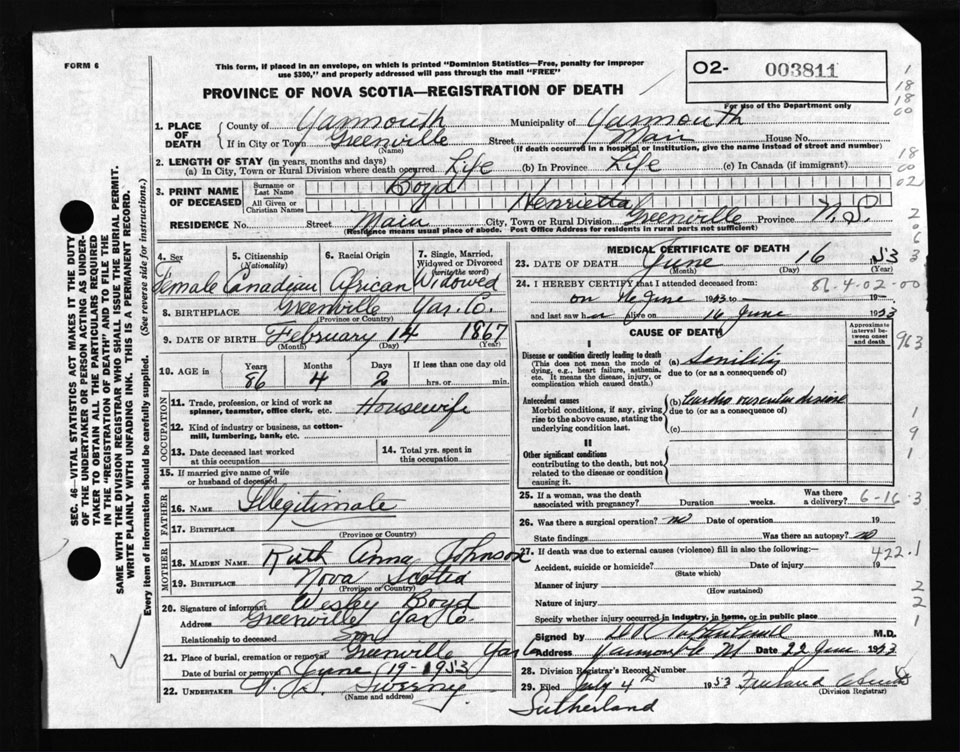 FORM 6
This form, if placed in an envelope, on which is printed "Dominion Statistics—Free, penalty for improper
use $300," and properly addressed will pass through the mail "FREE"
PROVINCE OF NOVA SCOTIA—REGISTRATION OF DEATH
02- 003811
For use of the Department only
1. PLACE OF DEATH
County of Yarmouth Municipality of Yarmouth
If in City or Town Greenville Street Main House No.
(Name) (If death occurred in a hospital or institution, give the name instead of street and number)
2. LENGTH OF STAY (in years, months and days)
(a) In City, Town or Rural Division where death occurred Life (b) In Province Life (c) In Canada (if immigrant)
3. PRINT NAME OF DECEASED
Surname or Last Name Boyd
All Given or Christian Names Henrietta
RESIDENCE No. Street Main City, Town or Rural Division Greenville Province N.S.
(Residence means usual place of abode. Post Office Address for residents in rural parts not sufficient)
4. Sex Female
5. Citizenship (Nationality) Canadian
6. Racial Origin African
7. Single, Married, Widowed or Divorced (write the word) Widowed
8. BIRTHPLACE Greenville Yar. Co.
(Province or Country)
9. DATE OF BIRTH February 14 1867
(Month) (Day) (Year)
10. AGE in Years 86 Months 4 Days 2 If less than one day old hrs. or min.
OCCUPATION
11. Trade, profession, or kind of work as spinner, teamster, office clerk, etc. Housewife
12. Kind of industry or business, as cotton-mill, lumbering, bank, etc.
13. Date deceased last worked at this occupation
14. Total yrs. spent in this occupation
15. If married give name of wife or husband of deceased
FATHER
16. NAME Illegitimate
17. BIRTHPLACE
(Province or Country)
MOTHER
18. MAIDEN NAME Ruth Anna Johnson
19. BIRTHPLACE Nova Scotia
(Province or Country)
20. Signature of informant Wesley Boyd
Address Greenville Yar Co.
Relationship to deceased Son
21. Place of burial, cremation or removal Greenville Yar Co
Date of burial or removal June 19-1953
22. UNDERTAKER Sweeny
(Name and address)
MEDICAL CERTIFICATE OF DEATH
23. DATE OF DEATH June 16 1953
(Month) (Day) (Year)
24. I HEREBY CERTIFY that I attended deceased from: 86-4-02-00
on 16 June 1953 to 19
and last saw her alive on 16 June 1953
CAUSE OF DEATH
Approximate interval between onset and death
I
Disease or condition directly leading to death
(This does not mean the mode of dying, e.g., heart failure, asthenia, etc. It means the disease, injury, or complication which caused death.)
(a) Senility
due to (or as a consequence of)
Antecedent causes
Morbid conditions, if any, giving rise to the above cause, stating the underlying condition last.
(b) Cardio vascular disease
due to (or as a consequence of)
(c)
II
Other significant conditions
contributing to the death, but not related to the disease or condition causing it.
25. If a woman, was the death associated with pregnancy? Duration weeks. Was there a delivery? 6-16-3
26. Was there a surgical operation? no Date of operation 19
State findings Was there an autopsy? no
27. If death was due to external causes (violence) fill in also the following:— 422.1
Accident, suicide or homicide? Date of injury 19
(State which)
Manner of injury
(How sustained)
Nature of injury
Specify whether injury occurred in industry, in home, or in public place
Signed by M.D.
Address Yarmouth NS Date 22 June 1953
28. Division Registrar's Record Number
29. Filed July 4th 1953
(Division Registrar)
Sutherland
SEC. 46—VITAL STATISTICS ACT MAKES IT THE DUTY
OF THE UNDERTAKER OR PERSON ACTING AS UNDER-
TAKER TO OBTAIN ALL THE PARTICULARS REQUIRED
IN THE "REGISTRATION OF DEATH" AND TO FILE THE
SAME WITH THE DIVISION REGISTRAR WHO SHALL ISSUE THE BURIAL PERMIT.
WRITE PLAINLY WITH UNFADING INK. THIS IS A PERMANENT RECORD.
Every item of information should be carefully supplied. (See reverse side for instructions.)
1
18
18
00
18
00
02
2
0
6
3
963
1
9
1
2
2
1